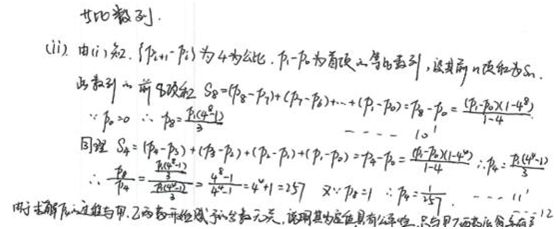 等比数列.
(ii) 由(i)知, {Pᵢ₊₁-Pᵢ}为4为公比, P₁-P₀为首项的等比数列, 设其前n项和为Sₙ.
此数列的前8项和 S₈=(P₈-P₇)+(P₇-P₆)+…+(P₁-P₀)=P₈-P₀=(P₁-P₀)(1-4⁸)/(1-4)
∵P₀=0 ∴P₈=P₁(4⁸-1)/3 ---- 10'
同理 S₄=(P₄-P₃)+(P₃-P₂)+(P₂-P₁)+(P₁-P₀)=P₄-P₀=(P₁-P₀)(1-4⁴)/(1-4) ∴P₄=P₁(4⁴-1)/3
∴P₈/P₄=(P₁(4⁸-1)/3)/(P₁(4⁴-1)/3)=(4⁸-1)/(4⁴-1)=4⁴+1=257 又∵P₈=1 ∴P₄=1/257. --- 11'
甲、乙两药 12